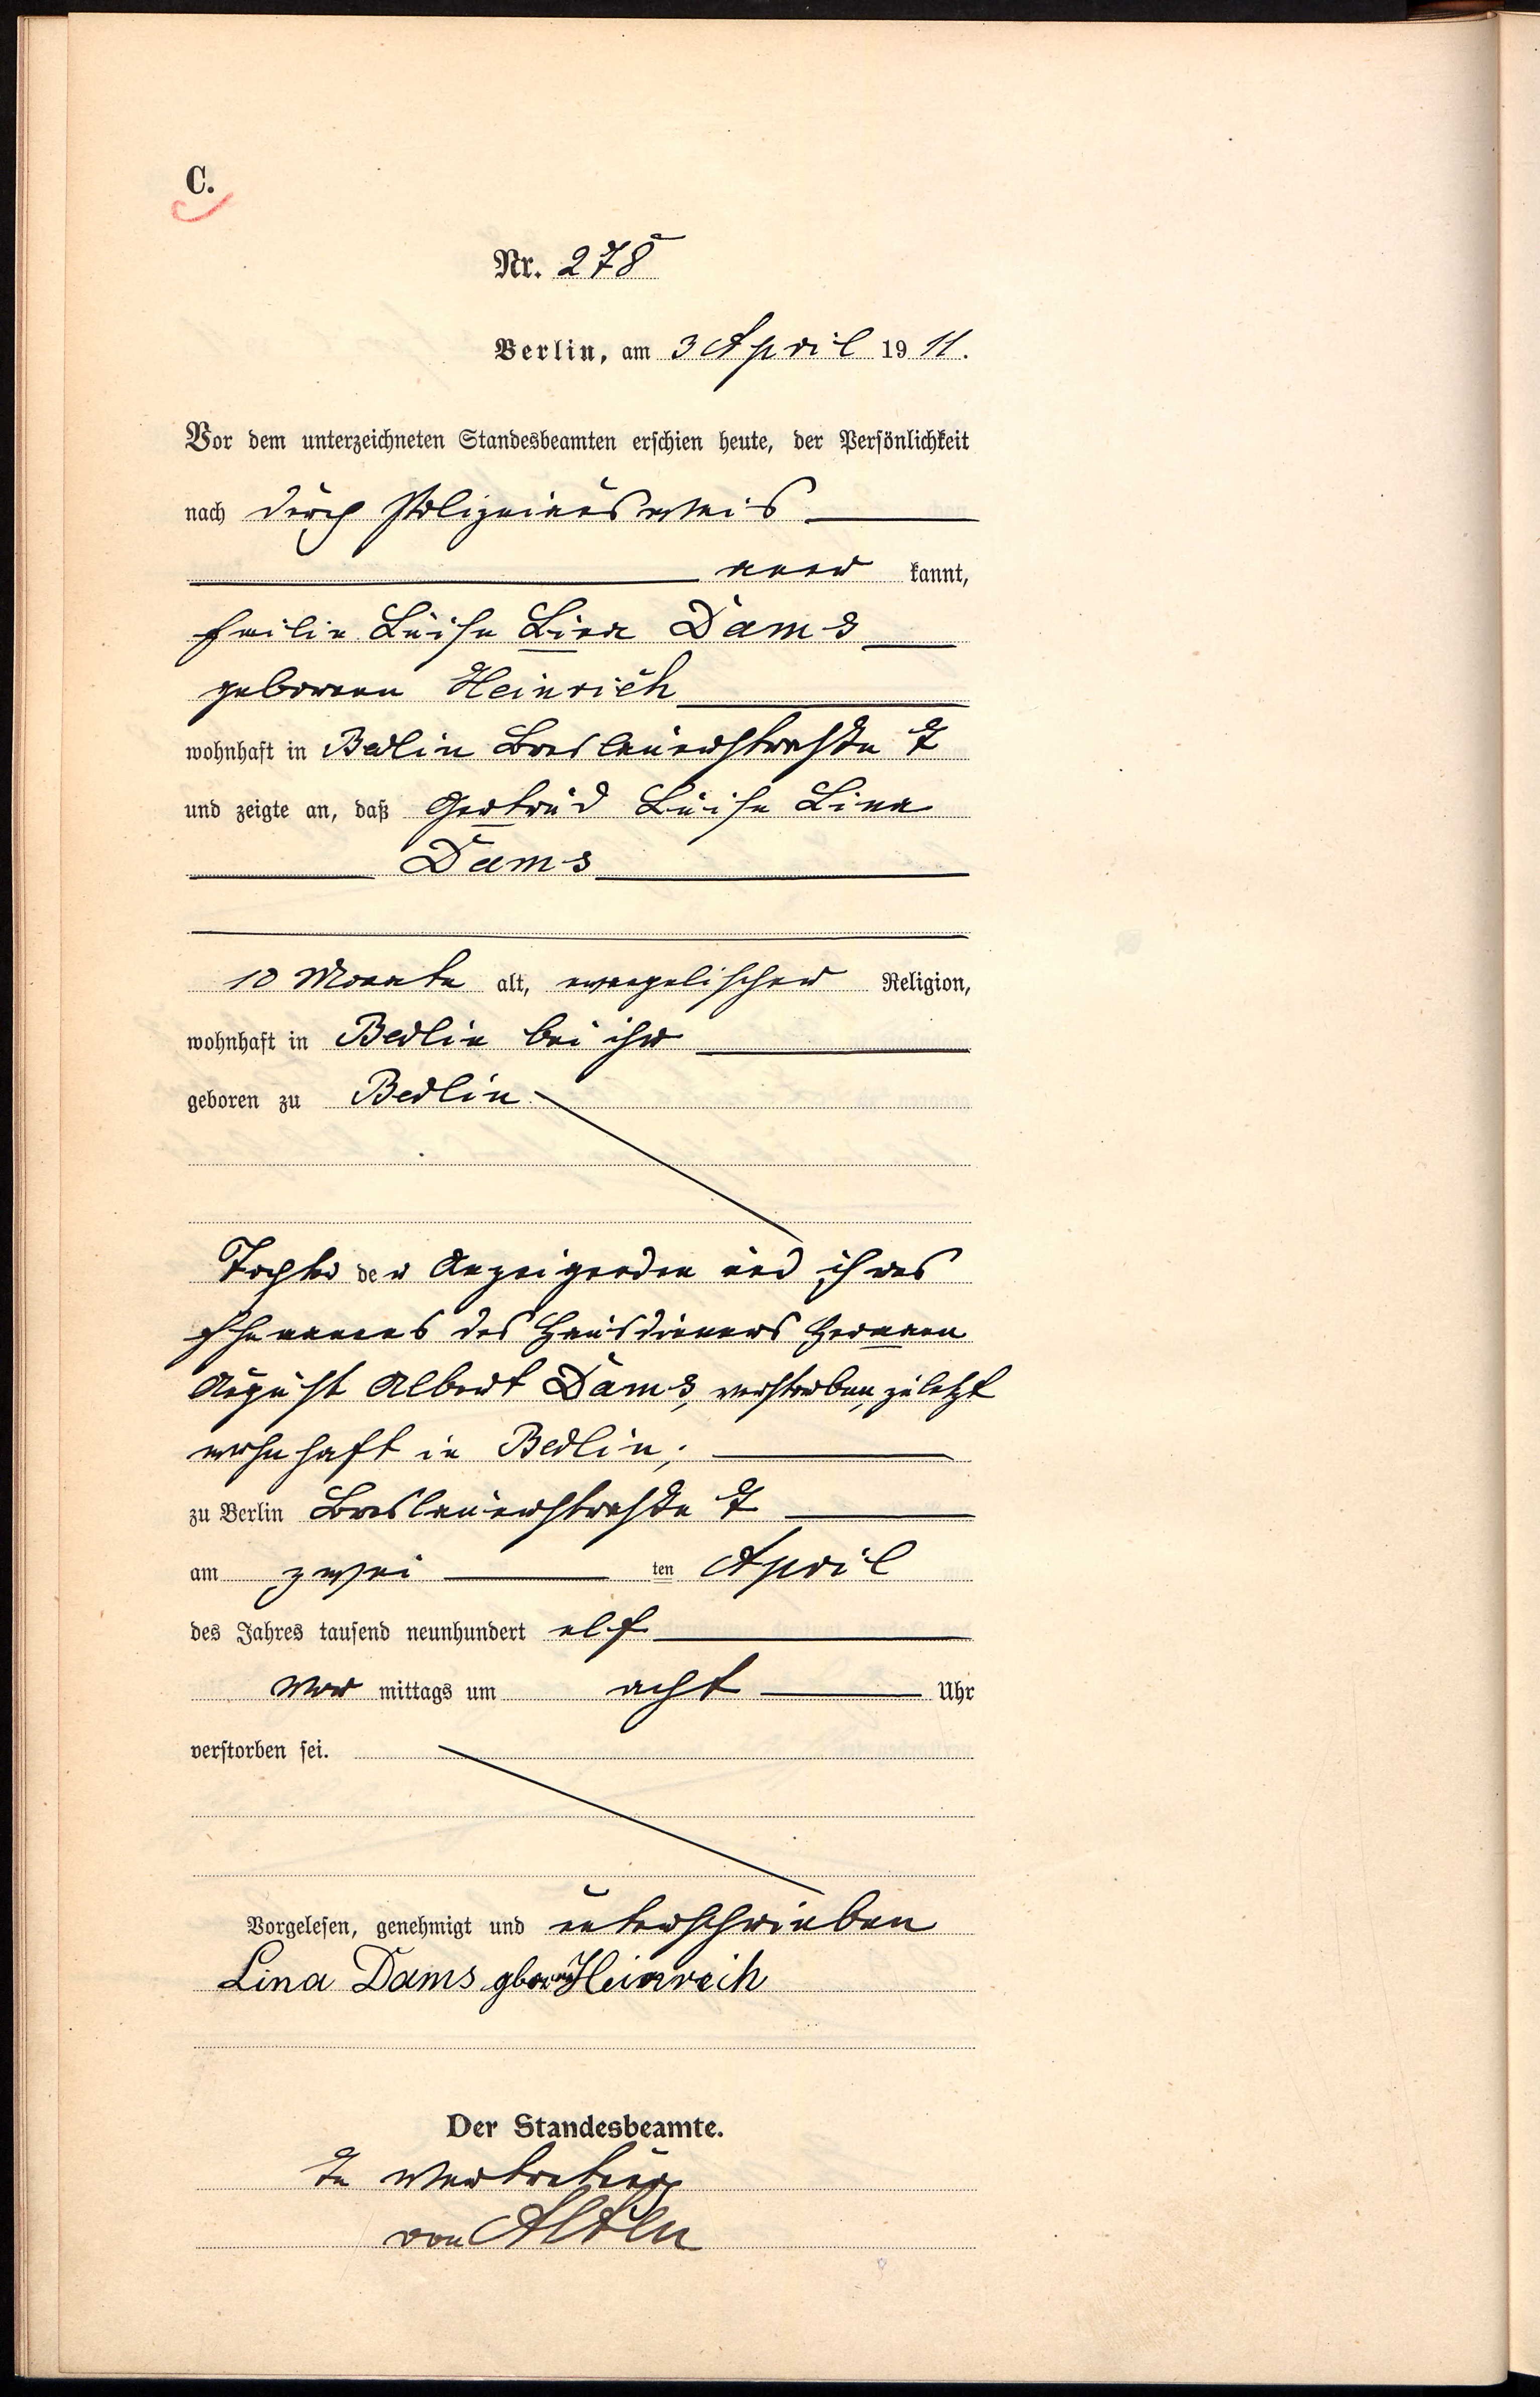 C.
Nr. 278
Berlin, am 3 April 1911.
Vor dem unterzeichneten Standesbeamten erschien heute, der Persönlichkeit
nach durch Polizeiausweis
aner kannt,
Luise Lina Dams
geborene Heinrich
wohnhaft in Berlin Breslauerstraße 7
und zeigte an, daß Gertrud Luise Lina
Dams
10 Monate alt, evangelischer Religion,
wohnhaft in Berlin bei ihr
geboren zu Berlin
Tochter der Anzeigenden und ihres
Ehemannes des Hausdieners Hermann
August Albert Dams, verstorben, zuletzt
wohnhaft in Berlin;
zu Berlin Breslauerstraße 7
am zwei ten April
des Jahres tausend neunhundert elf
Vor mittags um acht Uhr
verstorben sei.
Vorgelesen, genehmigt und unterschrieben
Lina Dams geborene Heinreich
Der Standesbeamte.
In Vertretung
von Alten